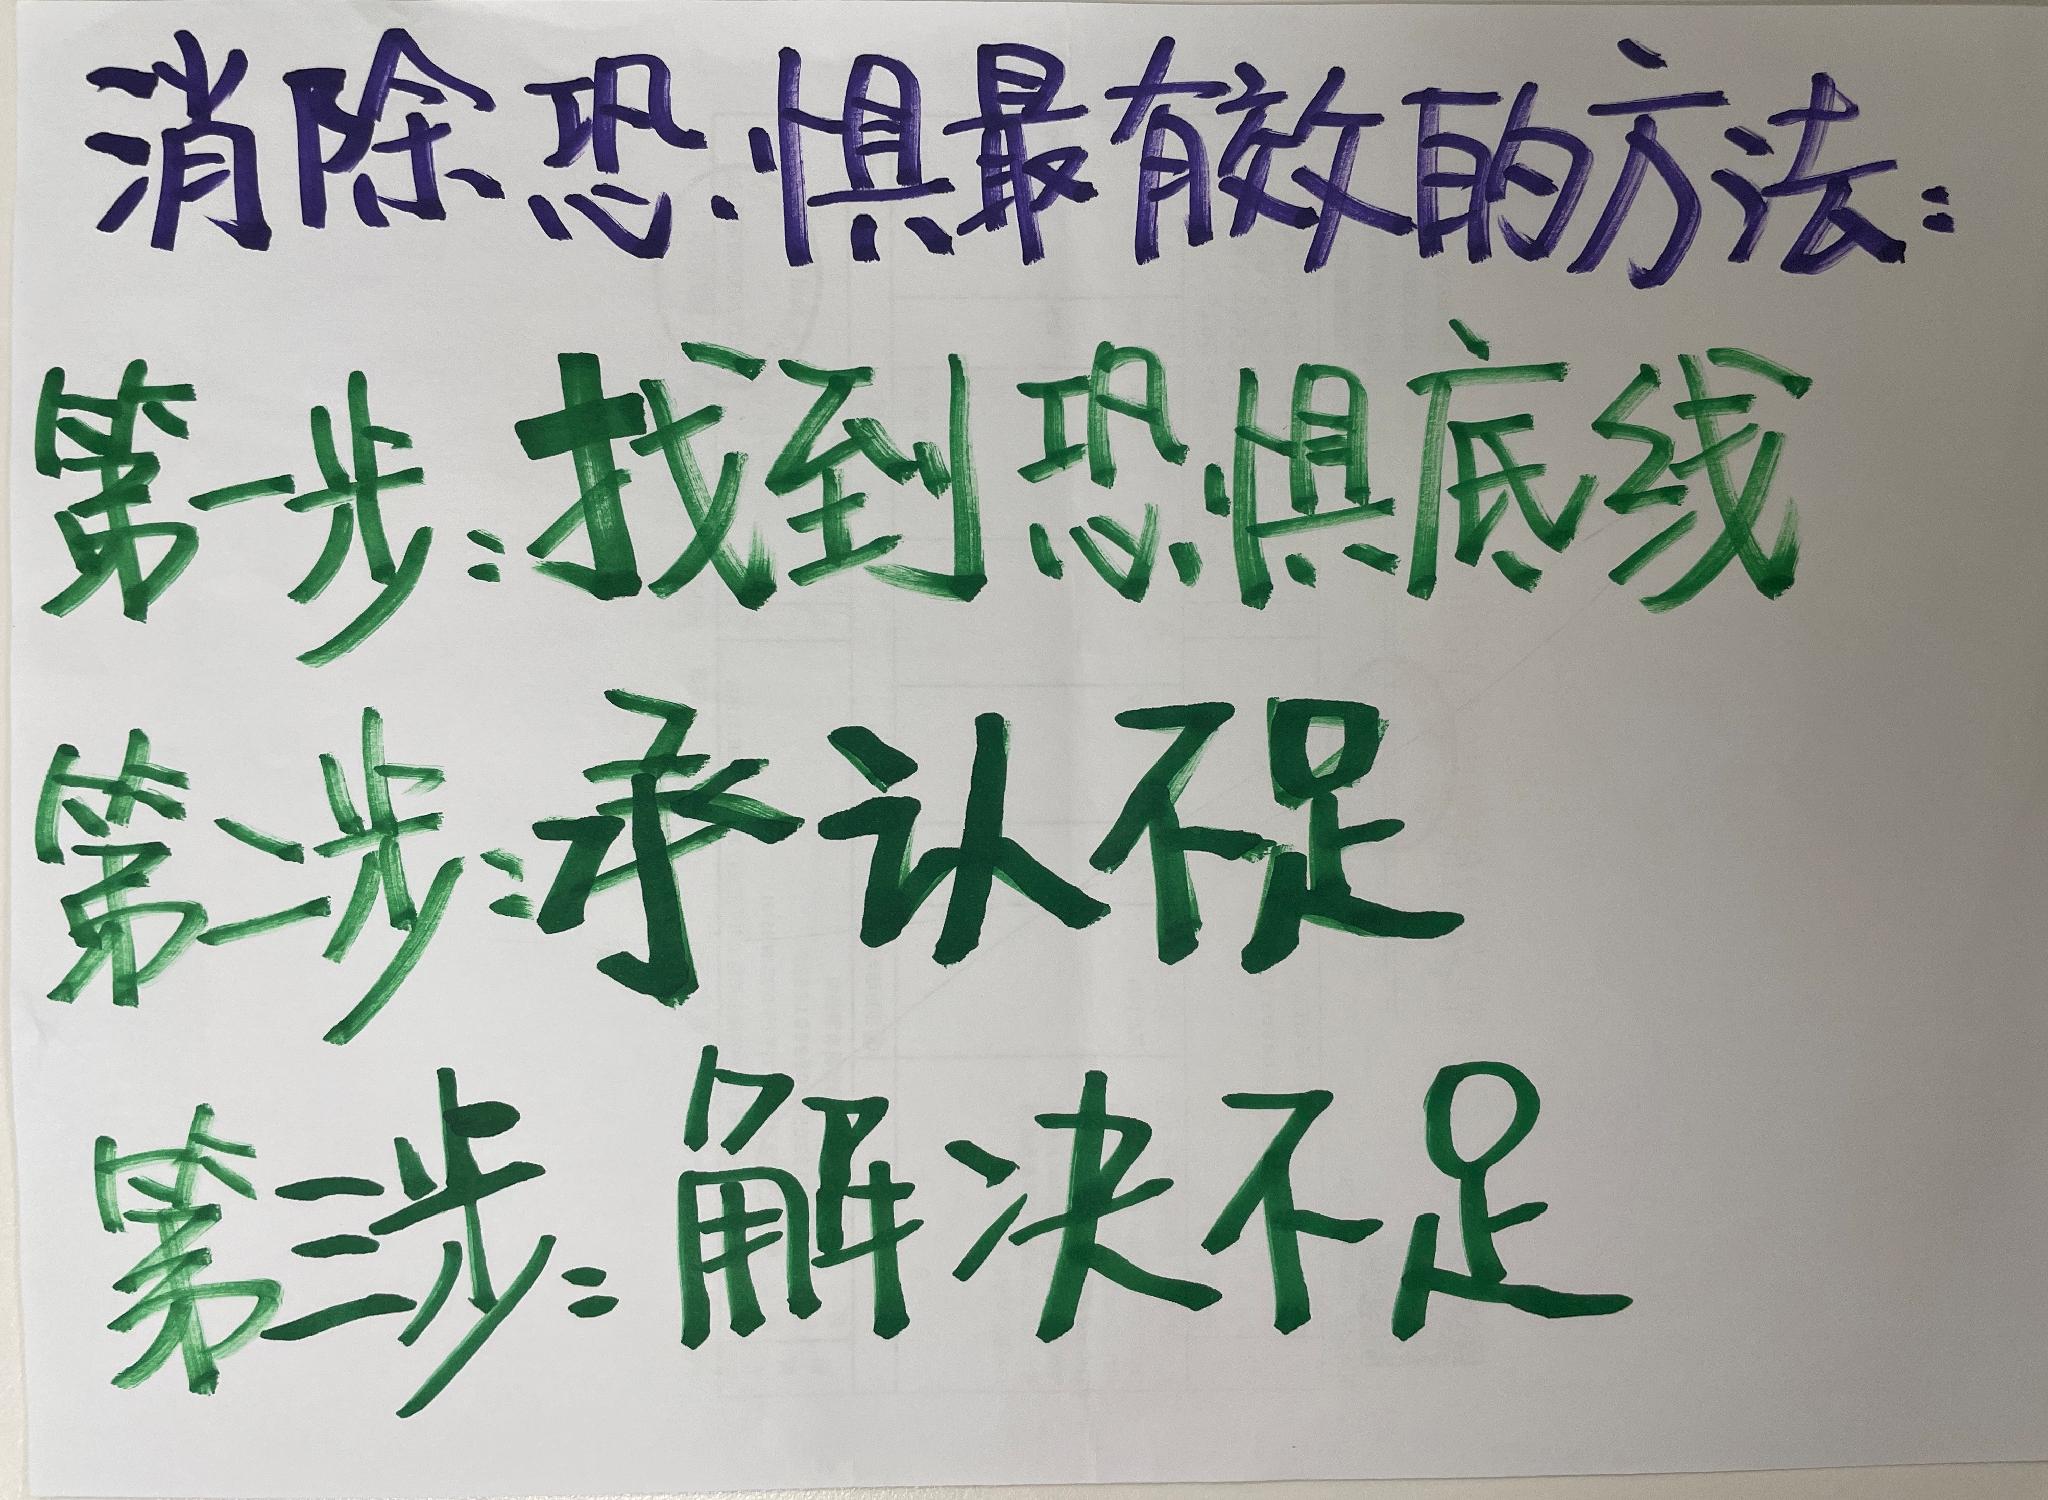 消除恐惧最有效的方法:
第一步:找到恐惧底线
第二步:承认不足
第三步:解决不足